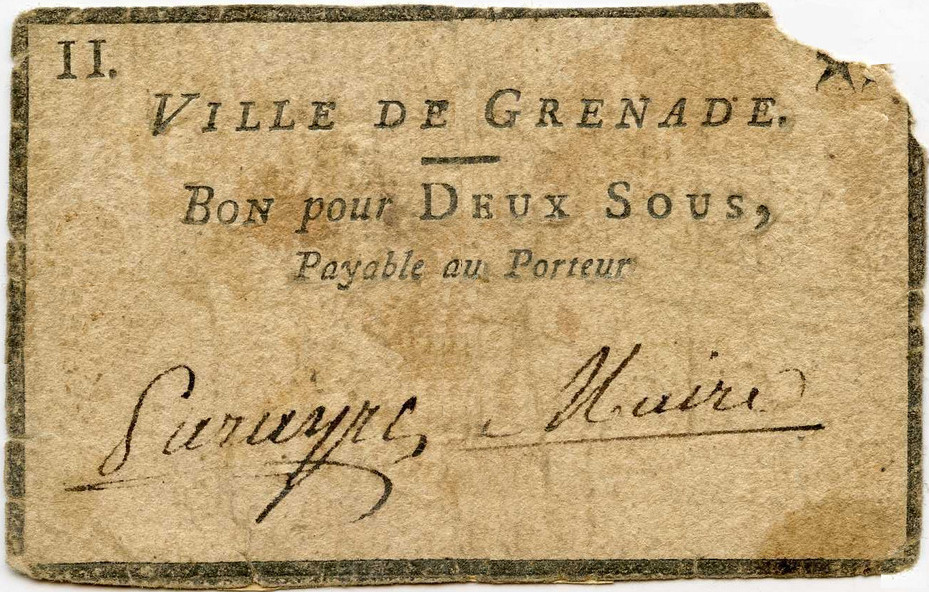 II.
VILLE DE GRENADE.
BON pour DEUX SOUS,
Payable au Porteur
Maire